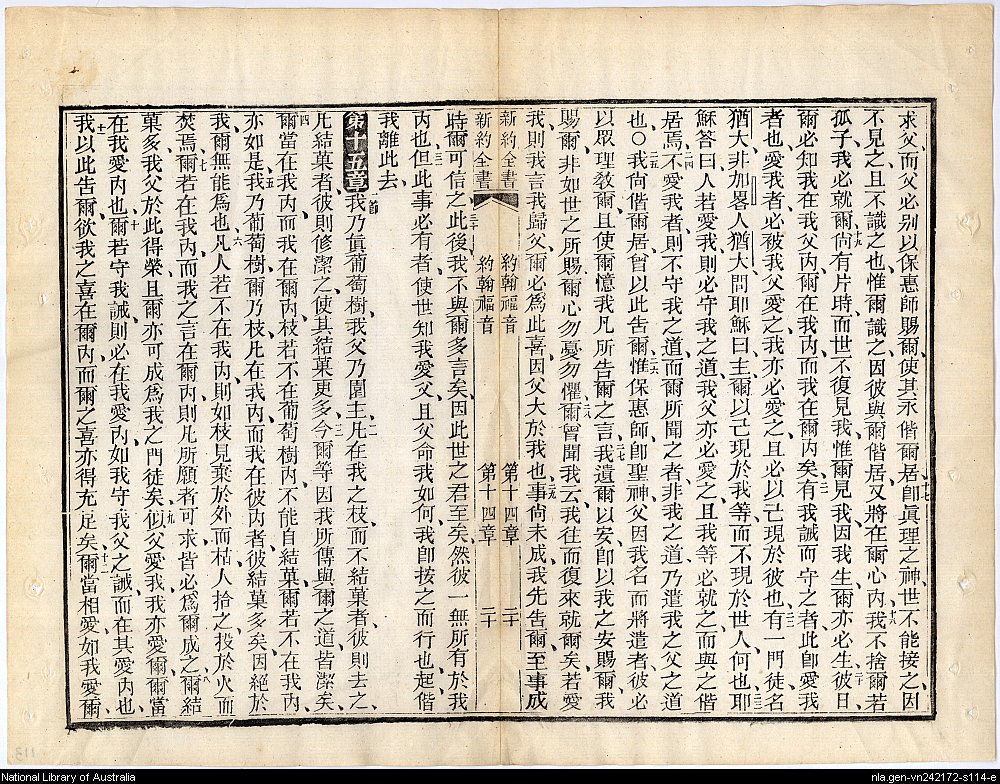 求父、而父必別以保惠師賜爾、使其永偕爾居、十七卽眞理之神、世不能接之、因
不見之、且不識之也、惟爾識之、因彼與爾偕居、又將在爾心內、十八我不捨爾若
孤子、我必就爾、十九尙有片時、而世不復見我、惟爾見我、因我生、爾亦必生、二十彼日
爾必知我在我父內、爾在我內、而我在爾內矣、二一有我誡而守之者、此卽愛我
者也、愛我者、必被我父愛之、我亦必愛之、且必以己現於彼也、二二有一門徒名
猶大、非加畧人猶大、問耶穌曰、主、爾以己現於我等、而不現於世人、何也、二三耶
穌答曰、人若愛我、則必守我之道、我父亦必愛之、且我等必就之、而與之偕
居焉、二四不愛我者、則不守我之道、而爾所聞之者、非我之道、乃遣我之父之道
也、○二五我尙偕爾居、曾以此吿爾、二六惟保惠師、卽聖神、父因我名而將遣者、彼必
以眾理敎爾、且使爾憶我凡所吿爾之言、二七我遺爾以安、卽以我之安賜爾、我
賜爾、非如世之所賜、爾心勿憂勿懼、二八爾曾聞我云、我往而復來就爾矣、若愛
我、則我言我歸父、爾必爲此喜、因父大於我也、二九事尙未成、我先吿爾、至事成
新約全書 約翰福音 第十四章 二十
新約全書 約翰福音 第十四章 二十
時、爾可信之、三十此後我不與爾多言矣、因此世之君至矣、然彼一無所有於我
內也、三一但此事必有者、使世知我愛父、且父命我如何、我卽按之而行也、起、偕
我離此去、
第十五章 一節我乃眞葡萄樹、我父乃園主、二凡在我之枝而不結菓者、彼則去之、
凡結菓者、彼則修潔之、使其結菓更多、三今爾等因我所傳與爾之道、皆潔矣、
四爾當在我內、而我在爾內、枝若不在葡萄樹內、不能自結菓、爾若不在我內、
亦如是、五我乃葡萄樹、爾乃枝、凡在我內、而我在彼內者、彼結菓多矣、因絕於
我、爾無能爲也、六凡人若不在我內、則如枝見棄於外而枯、人拾之、投於火而
焚焉、七爾若在我內、而我之言在爾內、則凡所願者可求、皆必爲爾成之、八爾結
菓多、我父於此得榮、且爾亦可成爲我之門徒矣、九似父愛我、我亦愛爾、爾當
在我愛內也、十爾若守我誡、則必在我愛內、如我守我父之誡、而在其愛內也、
十一我以此吿爾、欲我之喜在爾內、而爾之喜亦得充足矣、十二爾當相愛、如我愛爾、
113
National Library of Australia
nla.gen-vn242172-s114-e